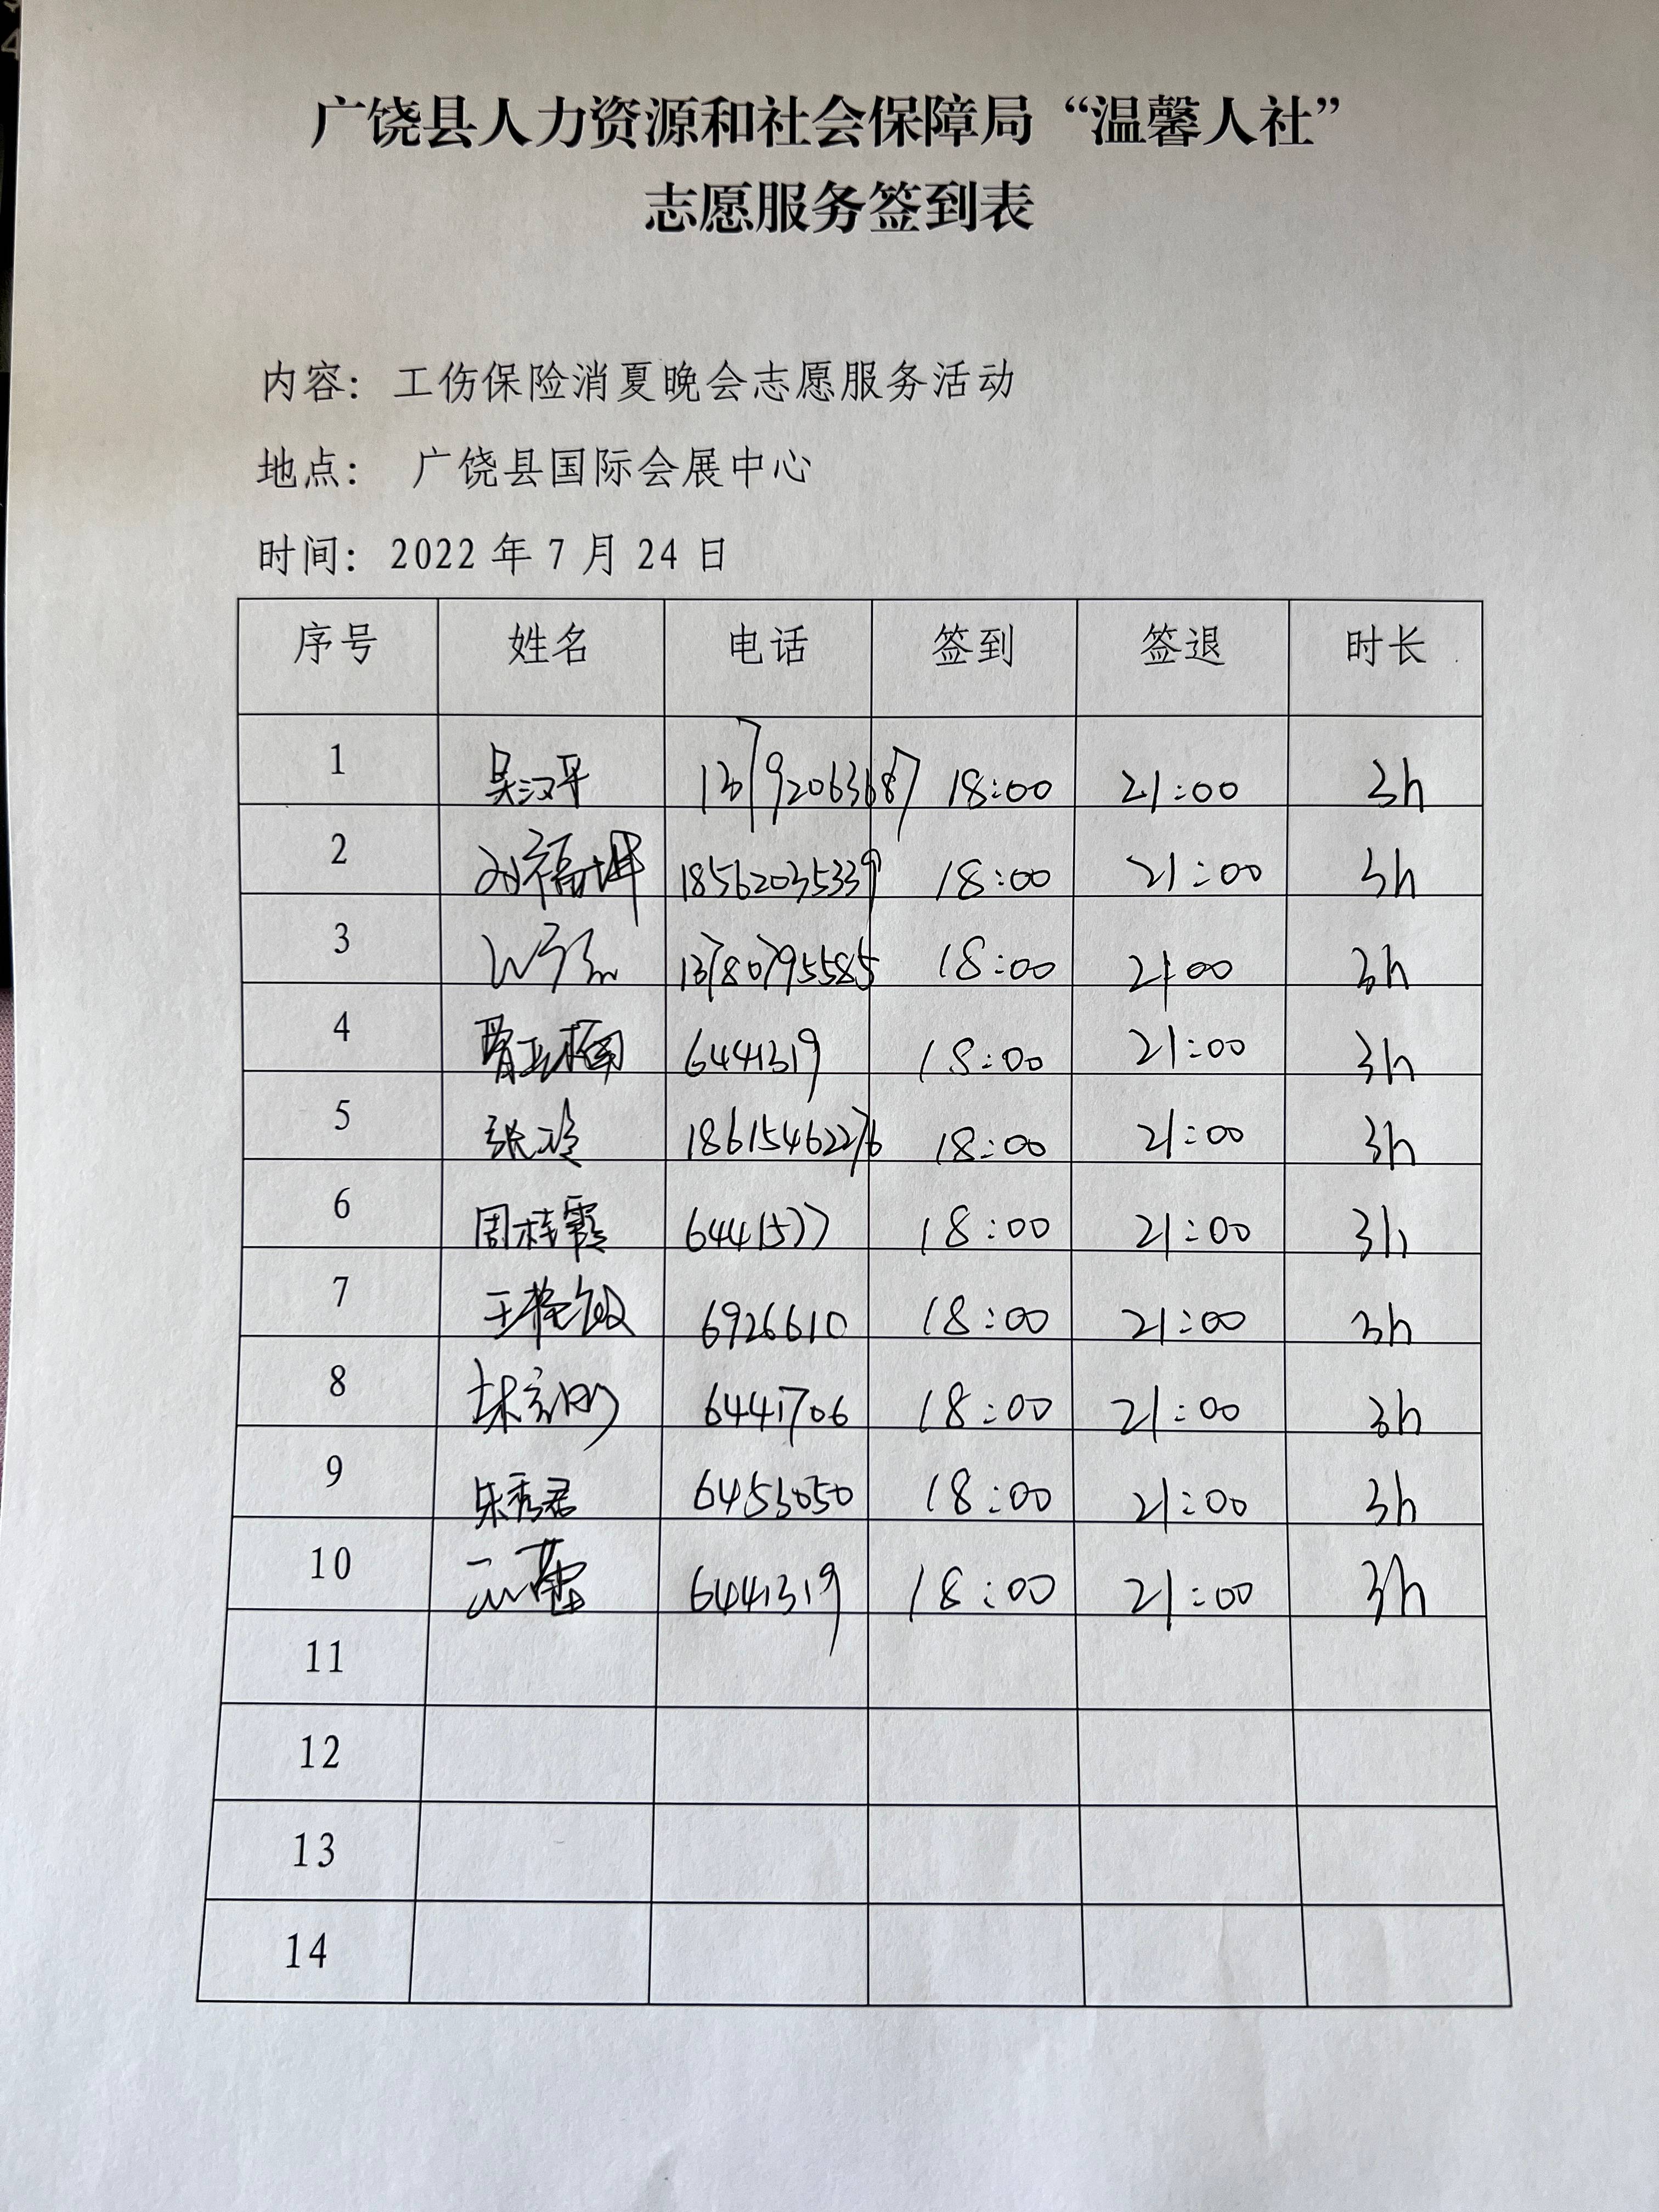 广饶县人力资源和社会保障局“温馨人社”
志愿服务签到表
内容：工伤保险消夏晚会志愿服务活动
地点： 广饶县国际会展中心
时间：2022 年 7 月 24 日
序号 姓名 电话 签到 签退 时长
1 吴汉平 13792063687 18:00 21:00 3h
2 刘福坤 18562035339 18:00 21:00 3h
3 13780795585 18:00 21:00 3h
4 6441319 18:00 21:00 3h
5 张玲 18615462276 18:00 21:00 3h
6 周桂霞 6441577 18:00 21:00 3h
7 6926610 18:00 21:00 3h
8 6441706 18:00 21:00 3h
9 朱秀君 6453050 18:00 21:00 3h
10 6441319 18:00 21:00 3h
11
12
13
14